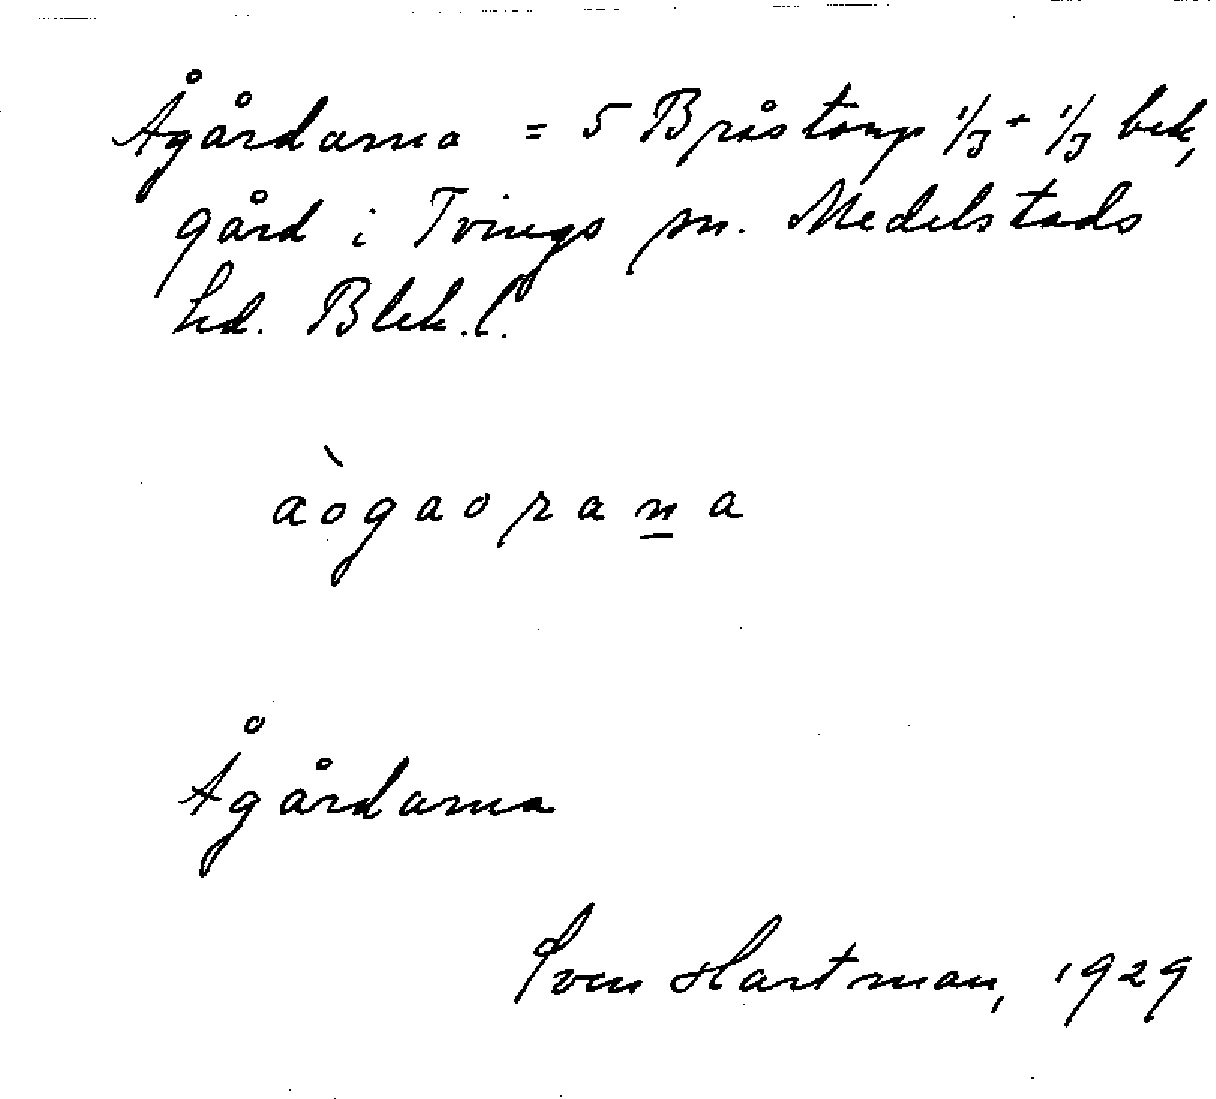 Ågårdarna = 5 Bråstorp 1/3 + 1/3 bek,
gård i Tvings sn. Medelstads
hd. Blek. l.
aògaorana
Ågårdarna
Sven Hartman, 1929